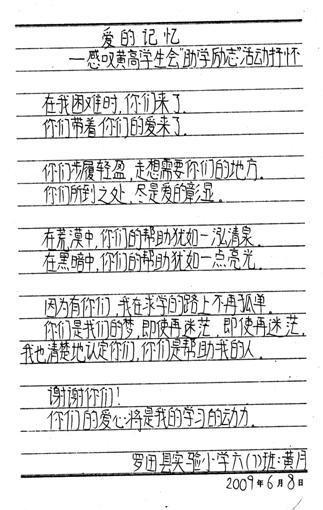 爱的记忆
—感叹黄高学生会“助学励志”活动抒怀
在我困难时，你们来了．
你们带着你们的爱来了．
你们步履轻盈，走想需要你们的地方．
你们所到之处，尽是爱的彰显．
在荒漠中，你们的帮助犹如一泓清泉．
在黑暗中，你们的帮助犹如一点亮光．
因为有你们，我在求学的路上不再孤单．
你们是我们的梦，即使再迷茫，即使再迷茫，
我也清楚地认定你们，你们是帮助我的人．
谢谢你们！
你们的爱心将是我的学习的动力．
罗田县实验小学六(7)班：黄月
2009年6月8日